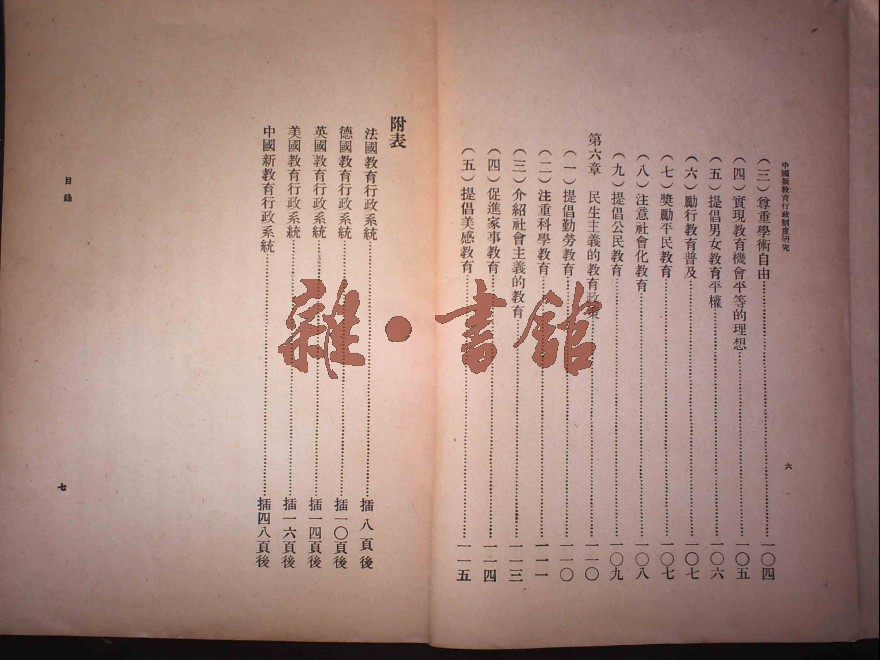 中國新教育行政制度研究
六
（三）尊重學術自由⋯⋯一〇四
（四）實現教育機會平等的理想⋯⋯一〇五
（五）提倡男女教育平權⋯⋯一〇六
（六）勵行教育普及⋯⋯一〇七
（七）獎勵平民教育⋯⋯一〇七
（八）注意社會化教育⋯⋯一〇八
（九）提倡公民教育⋯⋯一〇九
第六章　民生主義的教育政策⋯⋯一一〇
（一）提倡勤勞教育⋯⋯一一〇
（二）注重科學教育⋯⋯一一一
（三）介紹社會主義的教育⋯⋯一一三
（四）促進家事教育⋯⋯一一四
（五）提倡美感教育⋯⋯一一五
附表
法國教育行政系統⋯⋯插八頁後
德國教育行政系統⋯⋯插一〇頁後
英國教育行政系統⋯⋯插一四頁後
美國教育行政系統⋯⋯插一六頁後
中國新教育行政系統⋯⋯插四八頁後
目錄
七
雜·書館